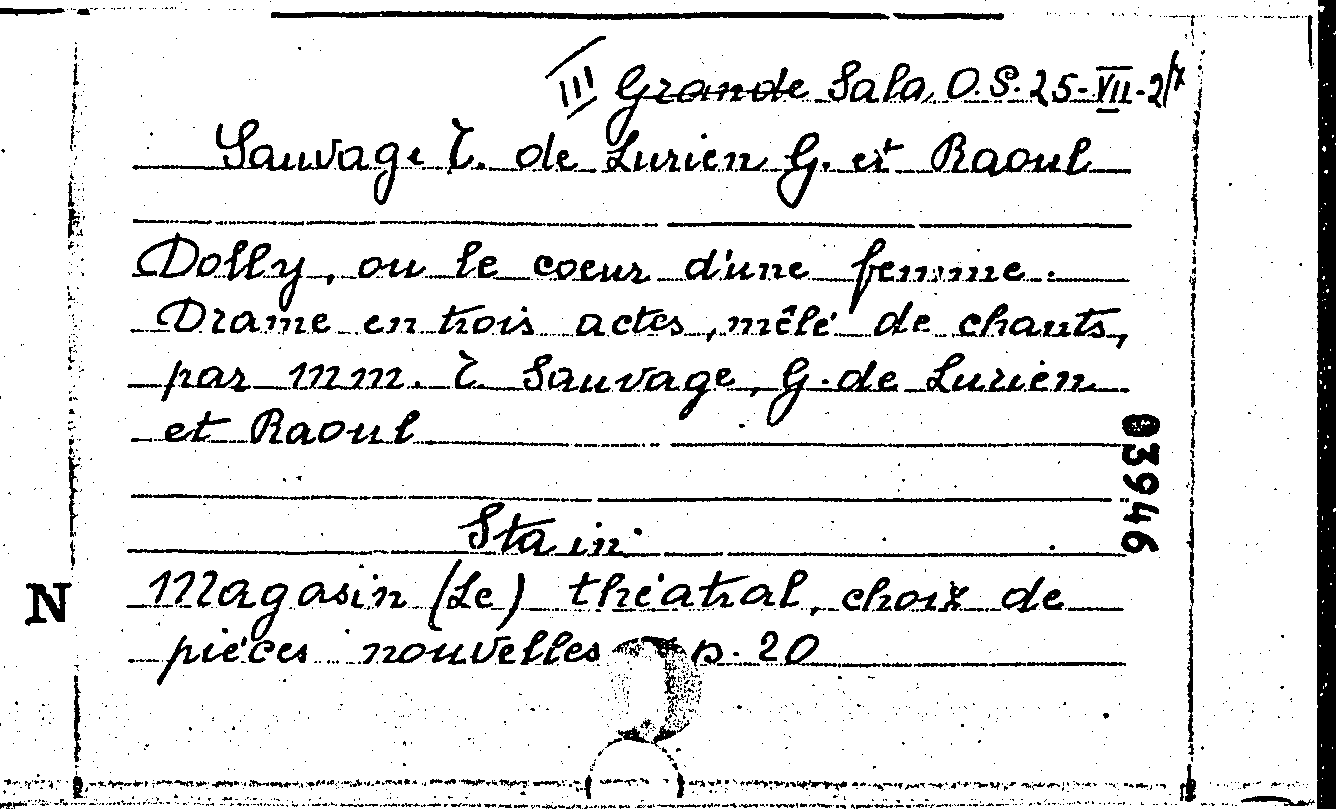 III Grande Sala O.S. 25-VII-2/7
Sauvage T. de Lurien G. et Raoul
Dolly, ou le coeur d'une femme.
Drame en trois actes, mêlé de chants,
par MM. T. Sauvage, G. de Lurien
et Raoul
03946
Sta in:
N
Magasin (Le) théatral, choix de
pièces nouvelles p. 20